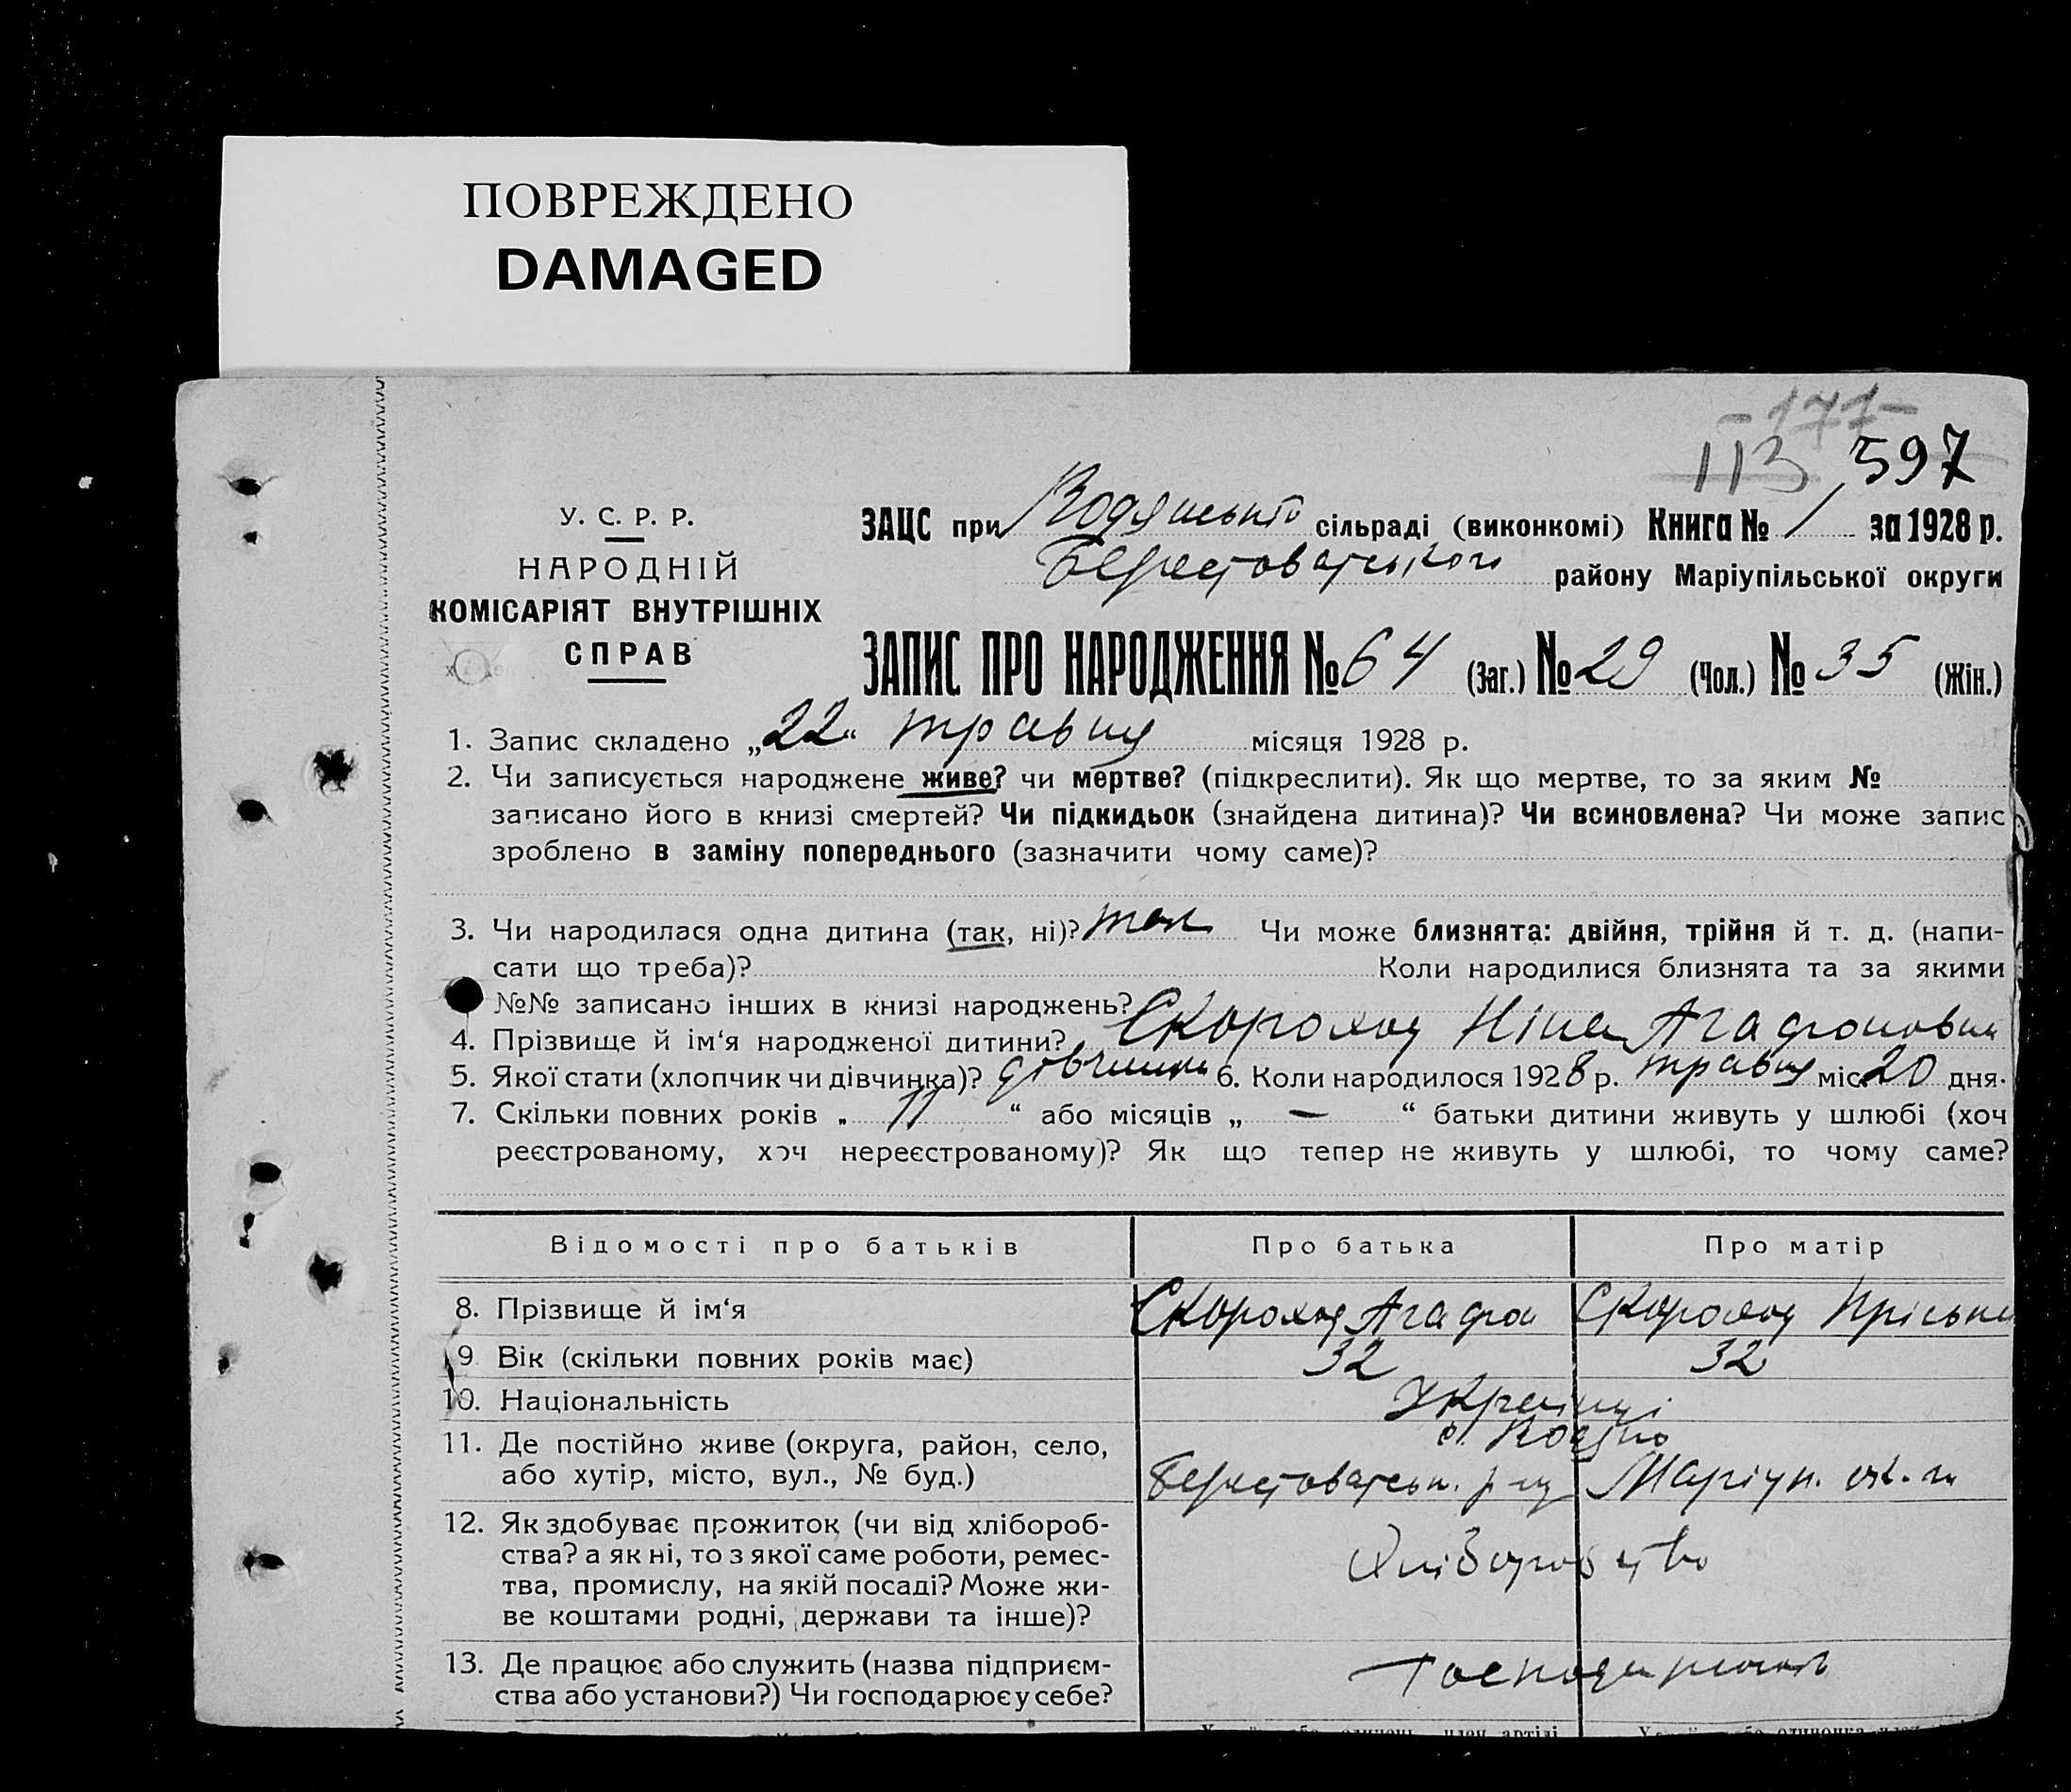 ПОВРЕЖДЕНО
DAMAGED
-177-
113 597
У. С. Р. Р.
НАРОДНІЙ
КОМІСАРІЯТ ВНУТРІШНІХ
СПРАВ
ЗАЦС при сільраді (виконкомі) Книга № 1 за 1928 р.
району Маріупільської округи
ЗАПИС ПРО НАРОДЖЕННЯ № 64 (Заг.) № 29 (Чол.) № 35 (Жін.)
1. Запис складено „22“ травня місяця 1928 р.
2. Чи записується народжене живе? чи мертве? (підкреслити). Як що мертве, то за яким №
записано його в книзі смертей? Чи підкидьок (знайдена дитина)? Чи всиновлена? Чи може запис
зроблено в заміну попереднього (зазначити чому саме)?
3. Чи народилася одна дитина (так, ні)? так Чи може близнята: двійня, трійня й т. д. (напи-
сати що треба)? Коли народилися близнята та за якими
№№ записано інших в книзі народжень?
4. Прізвище й ім‘я народженої дитини? Скороход Ніна Агафоновна
5. Якої стати (хлопчик чи дівчинка)? дівчинка 6. Коли народилося 1928 р. травня міс. 20 дня.
7. Скільки повних років „ 11 “ або місяців „ — “ батьки дитини живуть у шлюбі (хоч
реєстрованому, хоч нереєстрованому)? Як що тепер не живуть у шлюбі, то чому саме?
Відомості про батьків Про батька Про матір
8. Прізвище й ім‘я Скороход Агафон Скороход Пріська
9. Вік (скільки повних років має) 32 32
10. Національність Українці
11. Де постійно живе (округа, район, село, с. Водяно
або хутір, місто, вул., № буд.) Берестоватськ. р-ну Маріуп. ок-ги
12. Як здобуває прожиток (чи від хлібороб-
ства? а як ні, то з якої саме роботи, ремес- Хліборобство
тва, промислу, на якій посаді? Може жи-
ве коштами родні, держави та інше)?
13. Де працює або служить (назва підприєм-
ства або установи?) Чи господарює у себе?